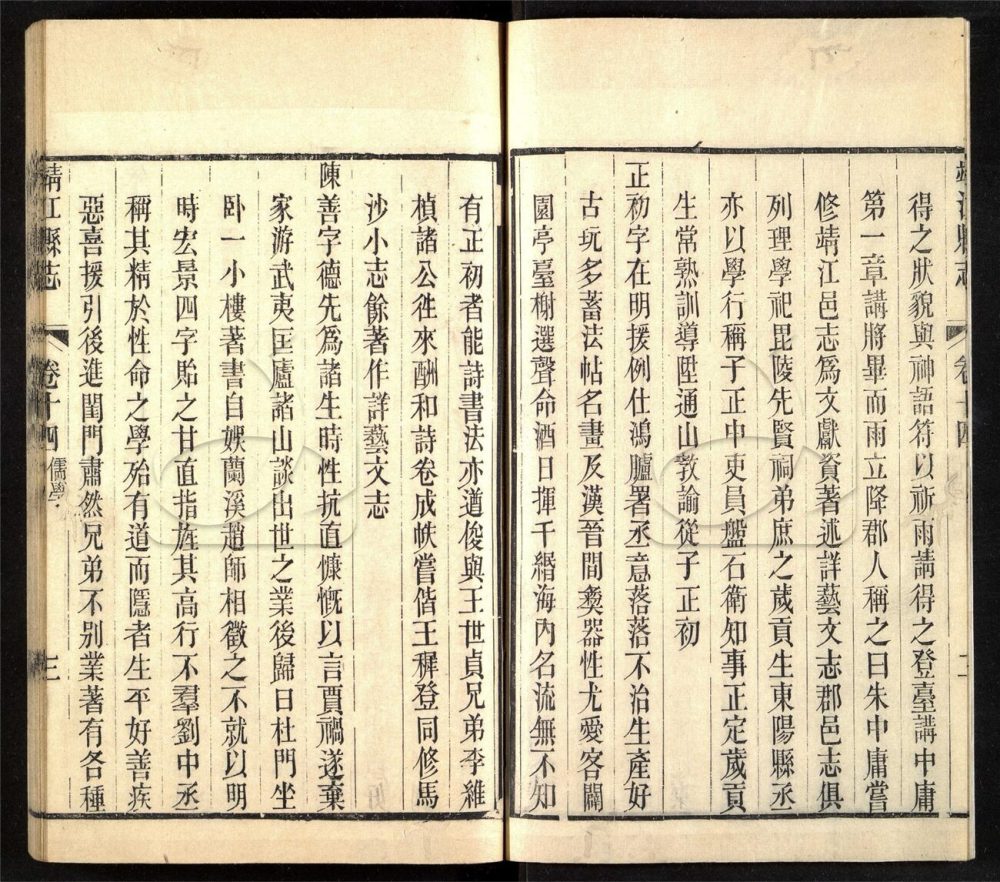 得之狀貌與神語符以祈雨請得之登臺講中庸
第一章講將畢而雨立降郡人稱之曰朱中庸嘗
修靖江邑志爲文獻資著述詳藝文志郡邑志俱
列理學祀毘陵先賢祠弟庶之歲貢生東陽縣丞
亦以學行稱子正中吏員盤石衛知事正定歲貢
生常熟訓導陞通山教諭從子正初
正初字在明援例仕鴻臚署丞意落落不治生產好
古玩多蓄法帖名畫及漢晉間彝器性尤愛客闢
園亭臺榭選聲命酒日揮千緡海內名流無不知
有正初者能詩書法亦遒俊與王世貞兄弟李維
楨諸公徃來酬和詩卷成帙嘗偕王穉登同修馬
沙小志餘著作詳藝文志
陳善字德先爲諸生時性抗直慷慨以言賈禍遂棄
家游武夷匡廬諸山談出世之業後歸日杜門坐
卧一小樓著書自娛蘭溪趙師相徵之不就以明
時宏景四字貽之甘直指旌其高行不羣劉中丞
稱其精於性命之學殆有道而隱者生平好善疾
惡喜援引後進閨門肅然兄弟不别業著有各種
靖江縣志
卷十四
儒學
三